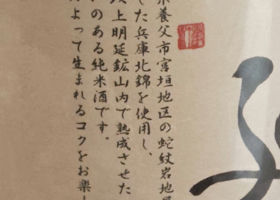 県養父市宮垣地区の蛇紋岩地
した兵庫北錦を使用し、
上明延鉱山内で熟成させた
のある純米酒です。
よって生まれるコクをお楽